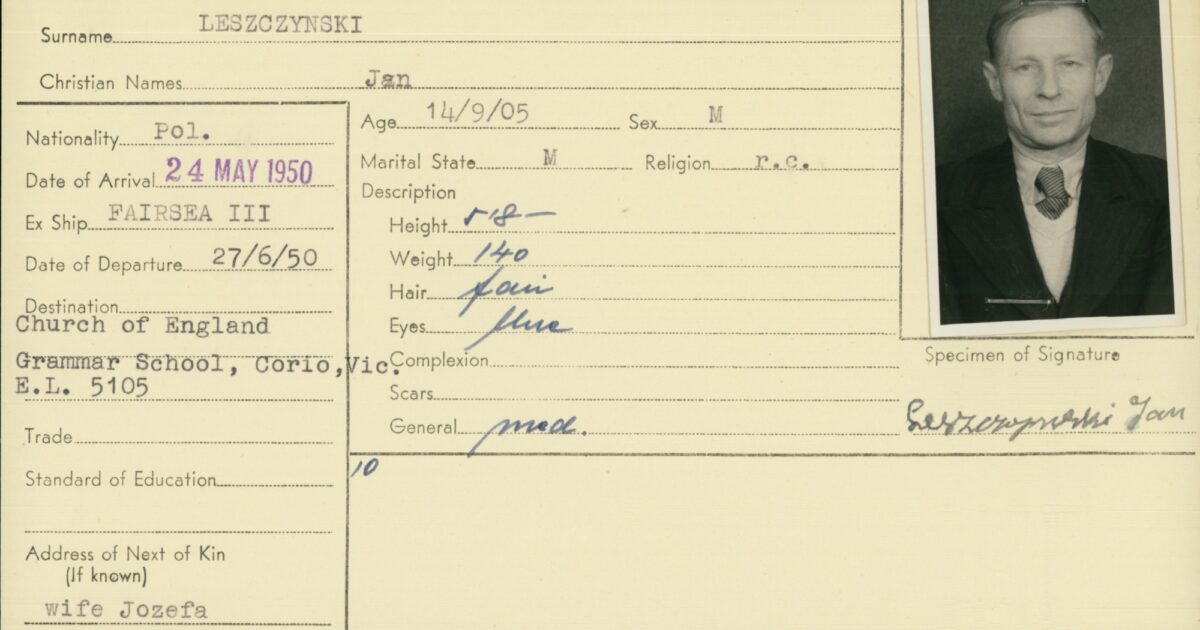 Surname LESZCZYNSKI
Christian Names Jan
Nationality Pol.
Date of Arrival 24 MAY 1950
Ex Ship FAIRSEA III
Date of Departure 27/6/50
Destination
Church of England
Grammar School, Corio, Vic.
E.L. 5105
Trade
Standard of Education
Address of Next of Kin
(If known)
wife Jozefa
Age 14/9/05 Sex M
Marital State M Religion r.c.
Description
Height 5'8-
Weight 140
Hair fair
Eyes blue
Complexion
Scars
General med.
10
Specimen of Signature
Leszczynski Jan